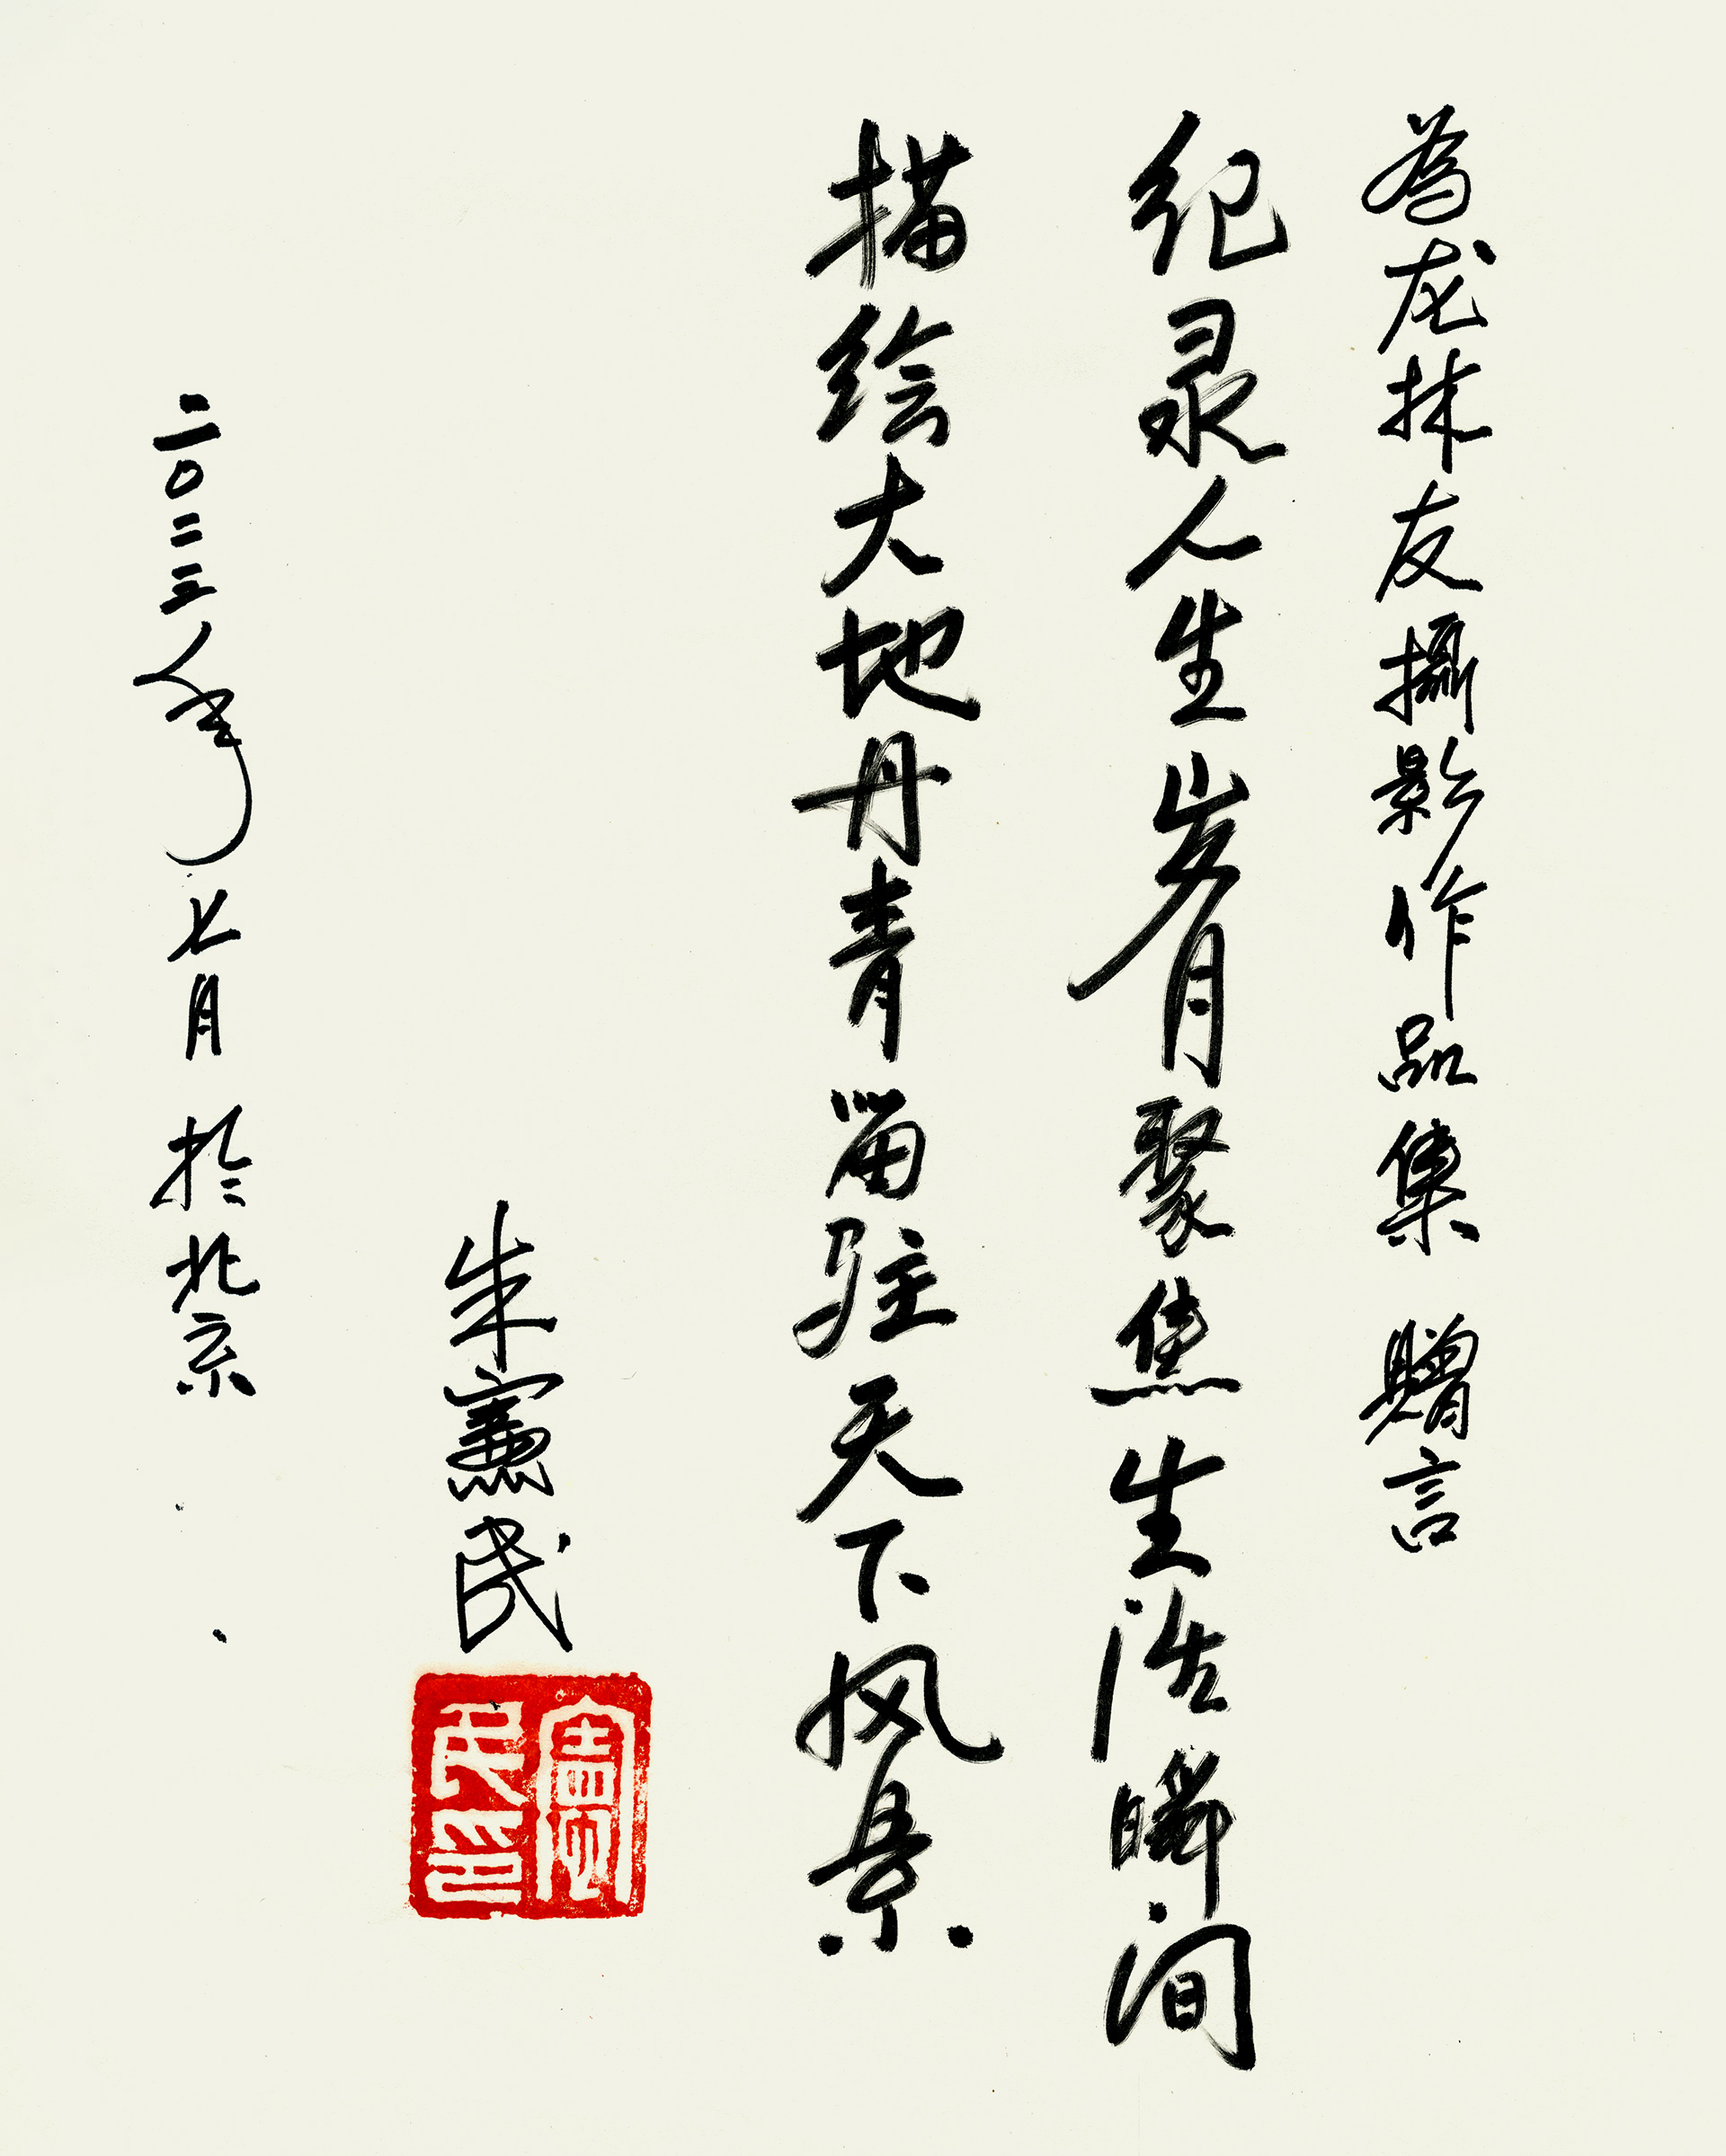 為龙林友攝影作品集 贈言
纪录人生岁月聚焦生活瞬间
描绘大地丹青留驻天下风景
朱憲民
憲民印
二〇二三年七月 於北京